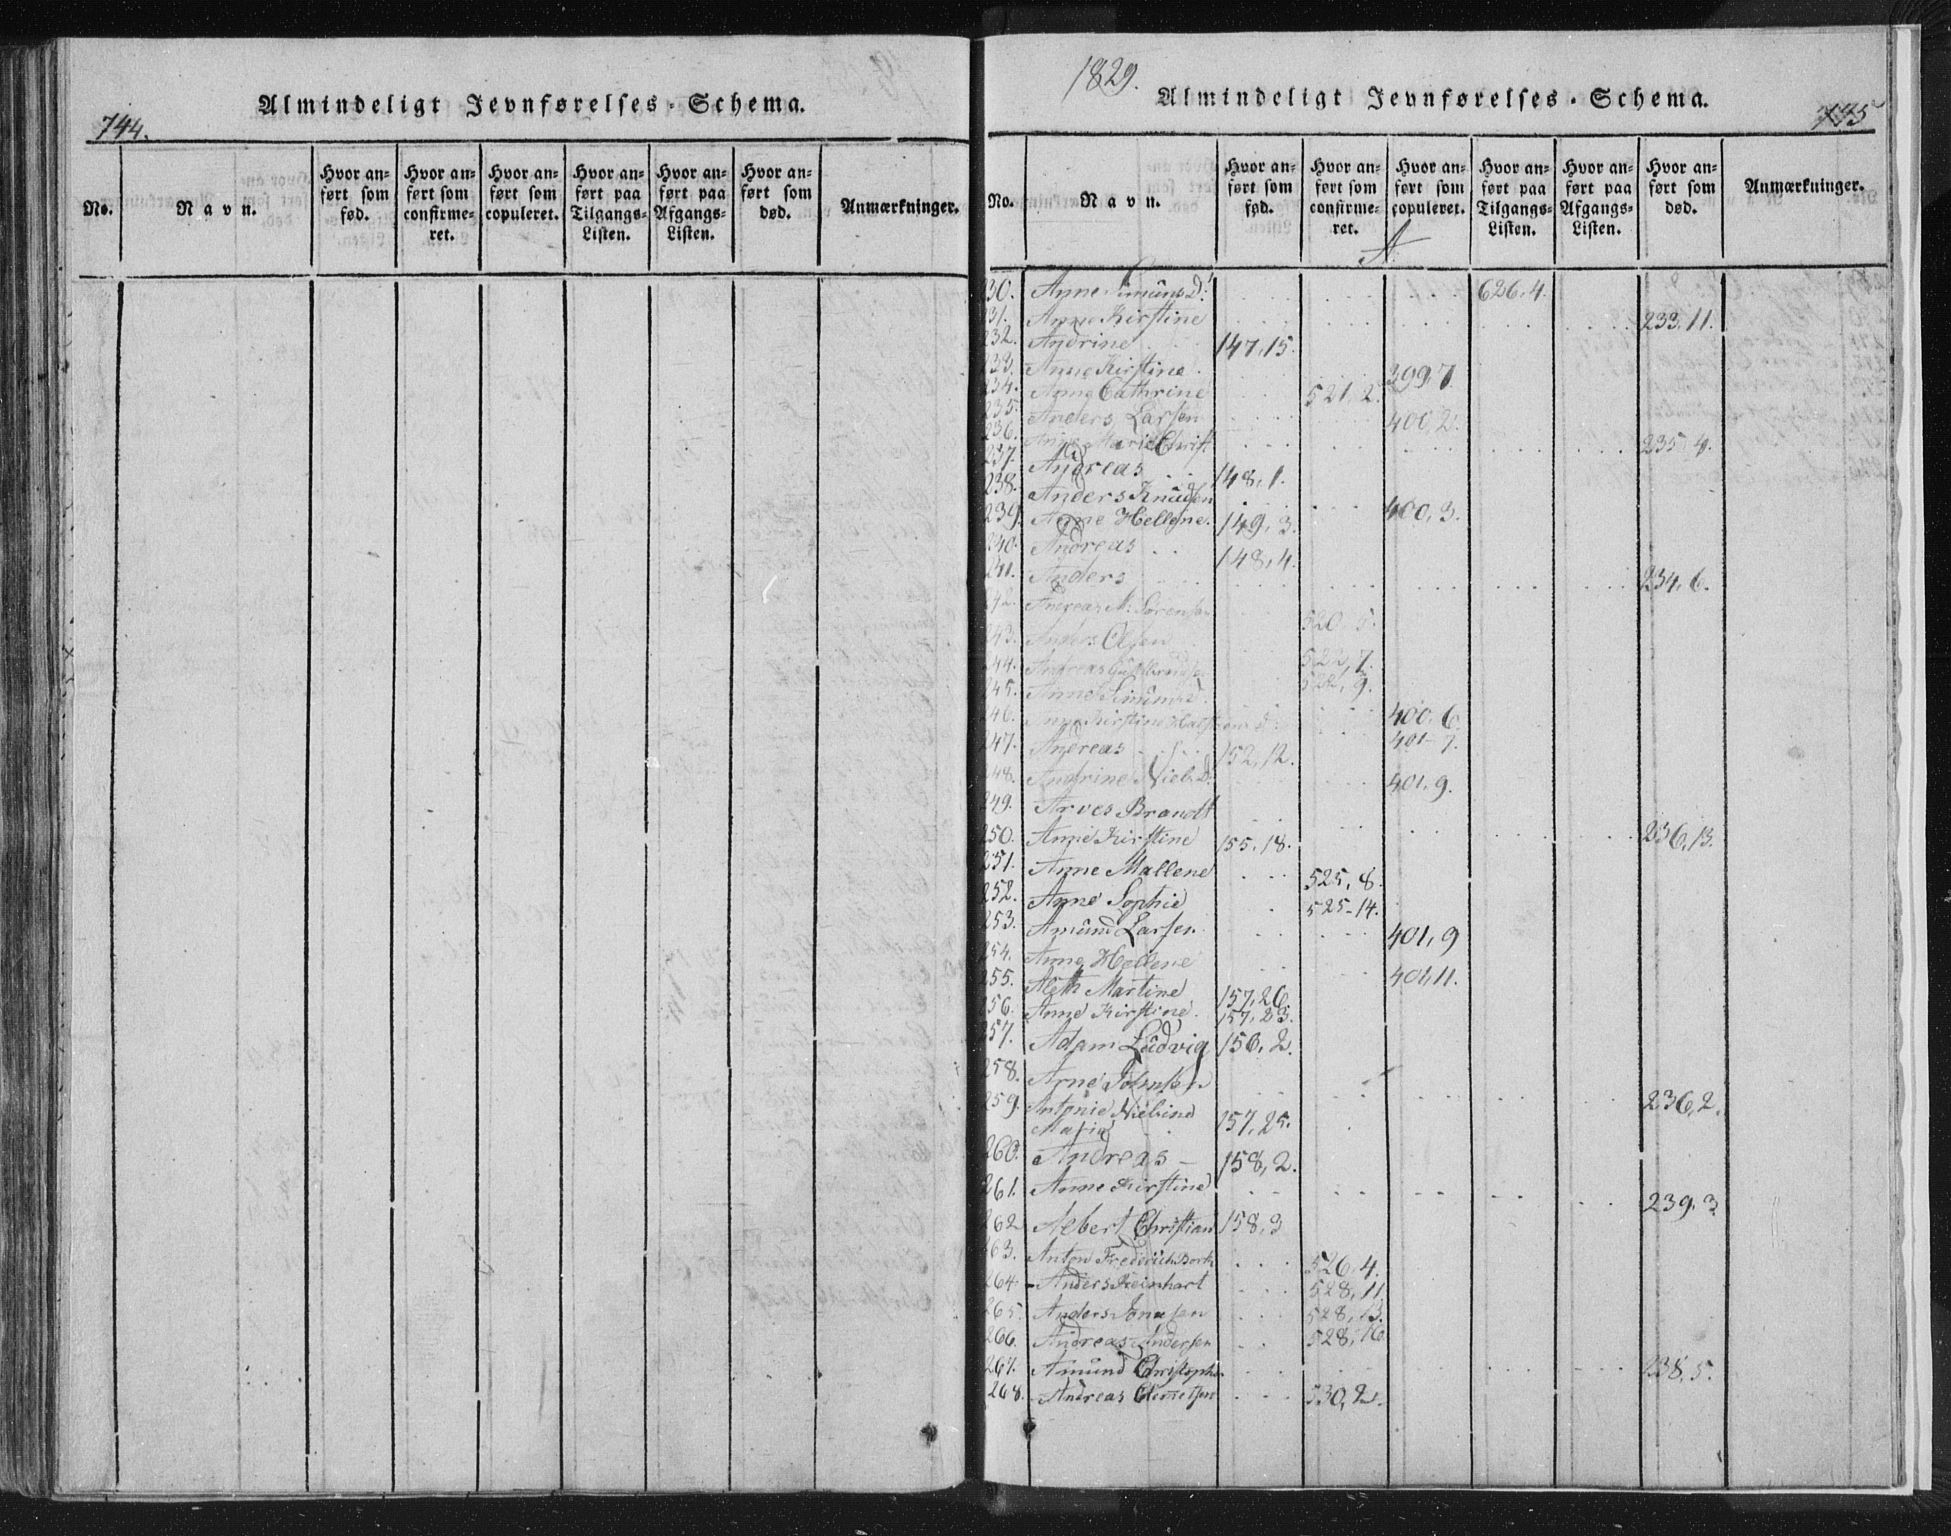 744.
Almindeligt Jevnførelses-Schema.
No.
Navn.
Hvor anført som fød.
Hvor anført som confirmeret.
Hvor anført som copuleret.
Hvor anført paa Tilgangs-Listen.
Hvor anført paa Afgangs-Listen.
Hvor anført som død.
Anmærkninger.
1829.
Almindeligt Jevnførelses-Schema.
745
No.
Navn.
Hvor anført som fød.
Hvor anført som confirmeret.
Hvor anført som copuleret.
Hvor anført paa Tilgangs-Listen.
Hvor anført paa Afgangs-Listen.
Hvor anført som død.
Anmærkninger.
A
230. Anne Simuns D: 626,4.
231. Anne Kirstine 233,11.
232. Andrine 147,15.
233. Anne Kirstine 399,7
234. Anne Cathrine 521,2.
235. Anders Larsen 400,2.
236. Anne Marie Christ 235,4.
237. Andreas 148,1.
238. Anders Knudsen 400,3.
239. Anne Hellene. 149,3.
240. Andreas 148,4.
241. Anders 234,6.
242. Andreas M: Sørensen 520,5.
243. Anders Olsen 522,7.
244. Andreas 522,9.
245. Anne 400,6
246. Anne Kirstine D: 401-7.
247. Andreas 152,12.
248. Andrine 401,9.
249. Arves Brandt 236,13.
250. Anne Kirstine 155,18.
251. Anne Mallene 525,8.
252. Anne Sophie 525-14.
253. Amund Larsen 401,9
254. Anne Hellene 401,11.
255. Aleth Martine 157,26.
256. Anne Kirstine. 157,23.
257. Adam Ludvig 156,2.
258. Arne 236,2.
259. Antonie
Maria 157,25.
260. Andreas 158,2.
261. Anne Kirstine 239,3
262 Albert Christian 158,3
263. Anton Frederich 526,4.
264 Anders Reinhart 528,11
265. Anders Jonasen 528,13.
266. Andreas Andersen 528,16
267. Amund Christoph 238,5.
268. Andreas Clemetsen 530,2.